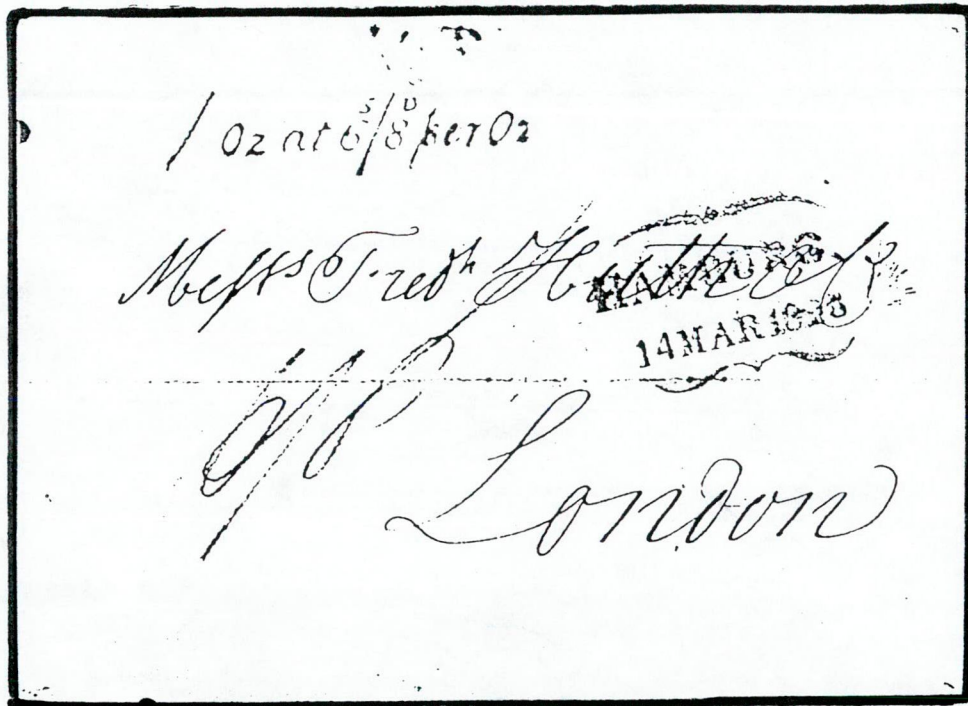 1 Oz at 6S/8D per Oz
Messrs Fredk Huth & Co
HAMBURG
14 MAR 18
6/8
London